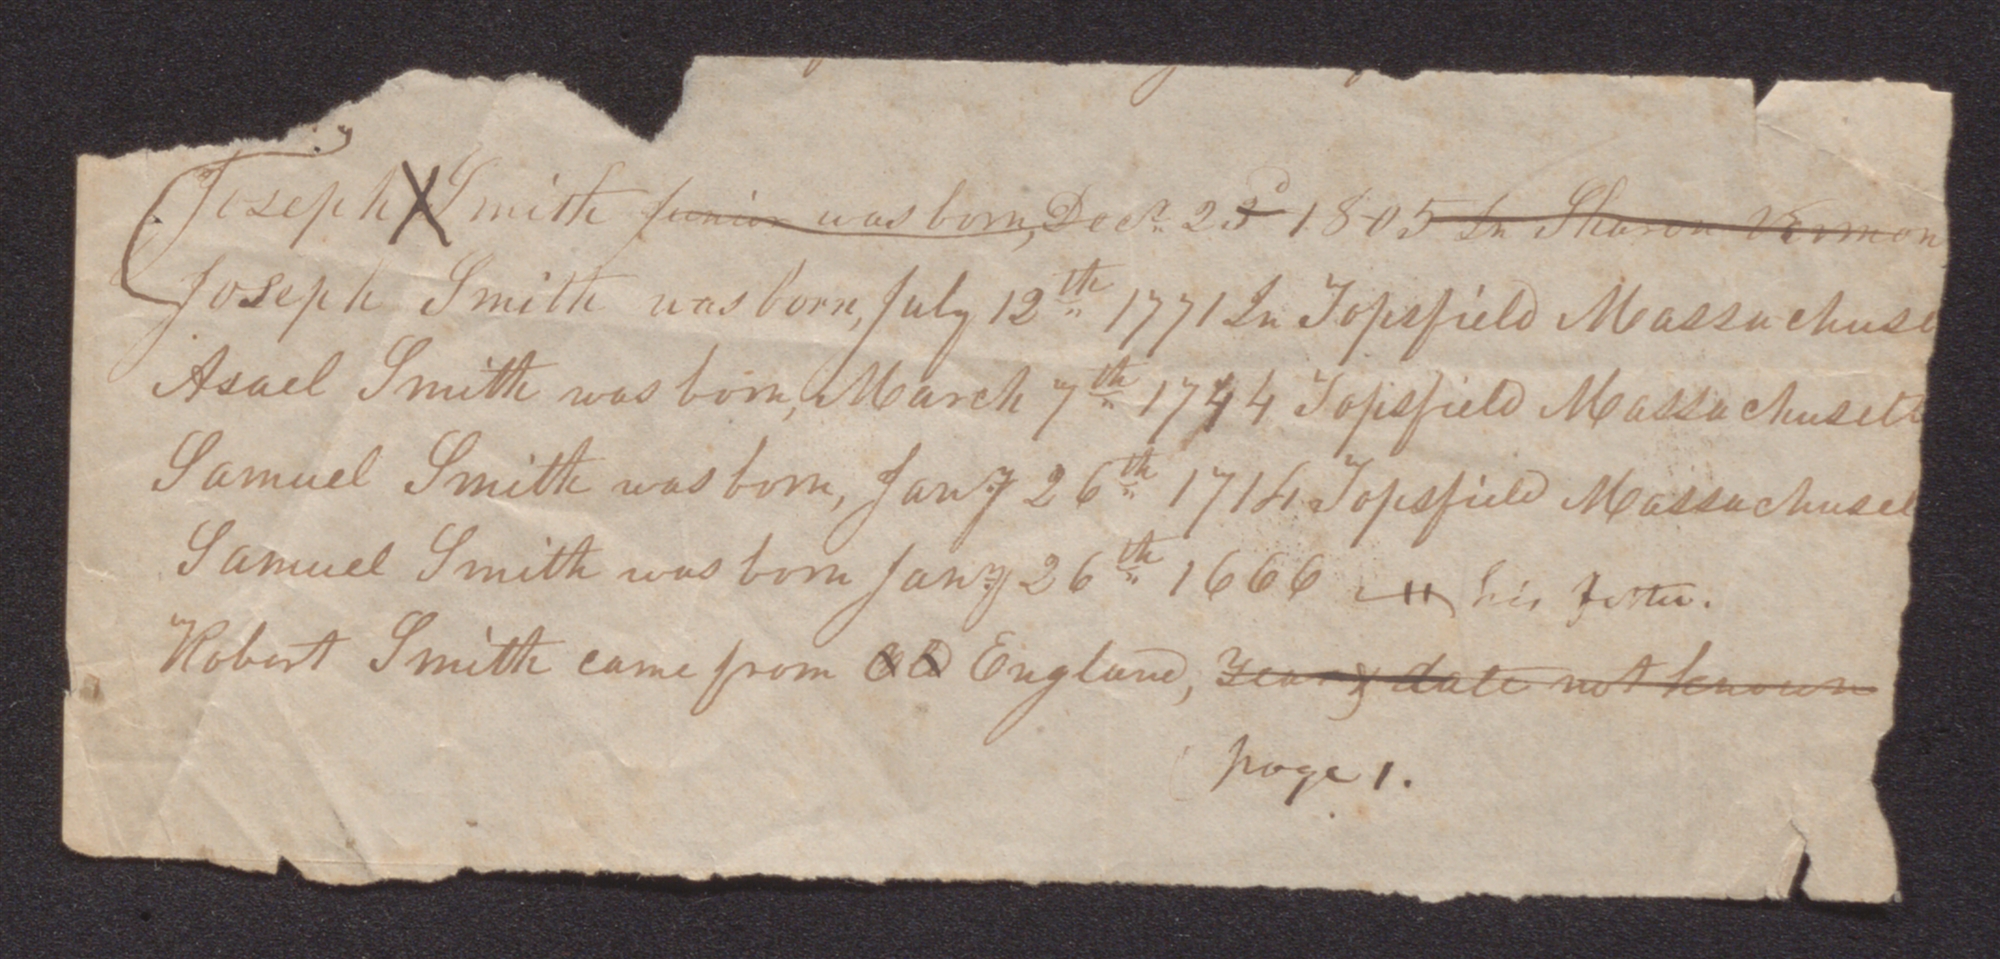 Joseph X Smith junior was born, Decr. 23d 1805 In Sharon Vermon
Joseph Smith was born, July 12th 1771 In Topsfield Massachuse
Asael Smith was born, March 7th 1744 Topsfield Massachusett
Samuel Smith was born, Jany 26th 1714 Topsfield Massachuset
Samuel Smith was born Jany 26th 1666 his father.
Robert Smith came from Old England, Year & date not known
page 1.